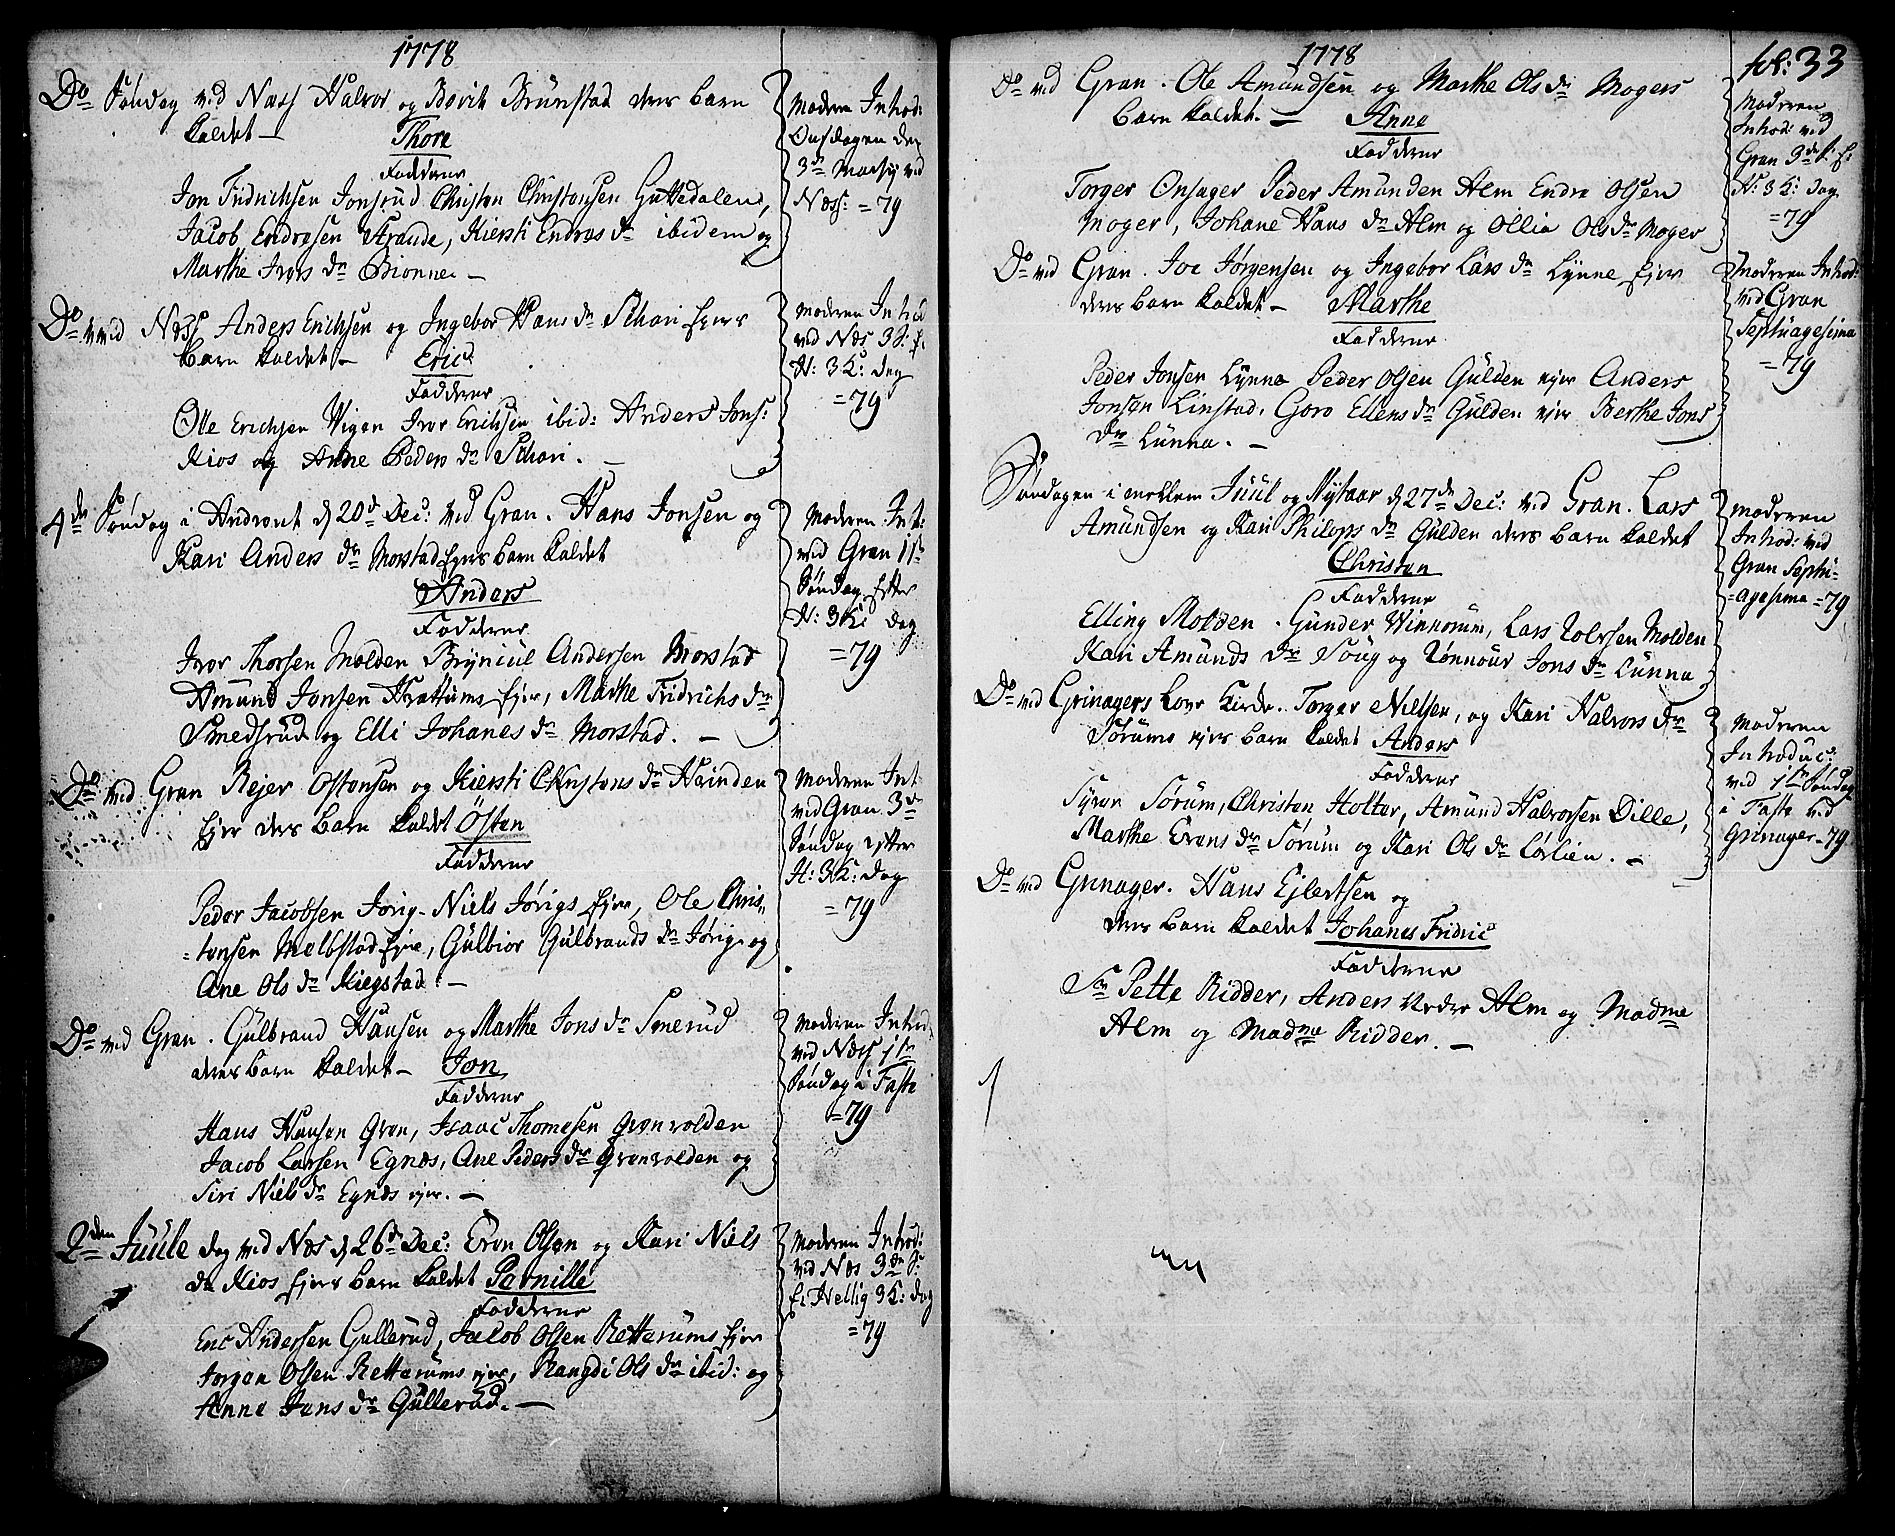 1778
Do Søndag ved Næss Halvor og Bovit Brunstad deres barn
kaldet — Thore
Fadderne
Jon Fridrichsen Jonsrud Christen Christensen Guttedalend,
Jacob Endresen Straude, Kiersti Endres dr ibidem og
Marthe Ivers dr Bionne. —
Moderen Introd:
Onsdagen den
3de Martij ved
Næss: = 79
Do ved Næss Anders Erichsen og Ingebor Hans dr Schari Ejer
barn kaldet — Eric
Fadderne
Ole Erichsen Vigen Iver Erichsen ibid: Anders Jons:
Kios og Anne Peders dr Schari. —
Moderen Introd
ved Næs 3 S: f.
H: 3 K: dag
= 79
4de Søndag i Andvent d 20de Dec: ved Gran. Hans Jonsen og
Kari Anders dr Morstad Ejers barn kaldet
Anders
Fadderne
Iver Thorsen Molden Bryniul Andersen Morstad
Amund Jonsen Hrattums Ejer, Marthe Fridrichs dr
Smedsrud og Elli Johanes dr Morstad. —
Moderen Int:
ved Gran 1ste
Søndag Efter
H: 3 K: dag
= 79
Do ved Gran Rejer Ostensen og Kiersti Christens dr Hvinden
Ejer deres barn kaldet Östen
Fadderne
Peder Jacobsen Jorig. Niels Jørigs Ejer, Ole Chris,,
=tensen Melbstad Ejer, Gulbior Gulbrands dr Jørig. og
Ane Ols dr Kiegstad. —
Moderen Int
ved Gran 3de
Søndag efter
H: 3 K: dag
= 79
Do ved Gran. Gulbrand Hansen og Marthe Jons dr Smerud
deres barn kaldet — Jon
Fadderne
Hans Hansen Gran, Isaac Thomesen Grønvolden
Jacob Larsen Egnæs, Ane Peders dr Grønvolden og
Siri Niels dr Egnæs ejer. —
Moderen Introd
ved Næss 1ste
Søndag i Faste
= 79
2den Juule dag ved Næs d 26de Dec: Even Olsen og Kari Niels
dr Kios Ejers barn kaldet Pernille
Fadderne
Eric Andersen Gullerud, Jacob Olsen Rettarums Ejer
Jørgen Olsen Rettarums ejer, Rangdi Ols dr ibid: og
Anne Jens dr Gullerud. —
Moderen Introd:
ved Næs 3de S:
Ef: Hellig 3 K: dag
= 79
1778
fol: 33
Do ved Gran. Ole Amundsen og Marthe Ols dr Mogers
barn kaldet. — Anne
Fadderne
Torger Onsager Peder Amunden Alm Endre Olsen
Moger, Johane Hans dr Alm og Ollia Ols dr Moger
Moderen
Introd: ved
Gran 3de S: Ef:
H: 3 K: dag
= 79
Do ved Gran. Joe Jørgensen og Ingebor Lars dr Lynne Ejer
deres barn kaldet — Marthe
Fadderne
Peder Jonsen Lynne Peder Olsen Gulden ejer Anders
Jonson Linstad, Goro Ellens dr Gulden ejer Berthe Jons
dr Lunna. —
Moderen Introd:
ved Gran
Septuagesima
= 79
Søndagen imellem Juul og Nytaar d 27de Dec: ved Gran. Lars
Amundsen og Kari Philops dr Gulden deres barn kaldet
Christen
Fadderne
Elling Molden. Gunder Winnorum, Lars Tolvsen Molden
Kari Amunds dr Soug og Rønnour Jons dr Lunna
Moderen
Introd: ved
Gran Septu-
=agesima = 79
Do ved Grinagers Lovr Kirke. Torger Nielsen, og Kari Halvors dr
Sørums ejer barn kaldet Anders
Fadderne
Syver Sørum, Christen Holter, Amund Halvorsen Dille,
Marthe Evens dr Sørum og Kari Ols dr Lørlien. —
Moderen
Introduc:
ved 1ste Søndag
i Faste ved
Grinager = 79
Do ved Grinager. Hans Ejlertsen og
deres barn kaldet Johanes Fridric
Fadderne
Sr Pette Ridder, Anders Vedre Alm og Madme
Alm og Madme Ridder. —